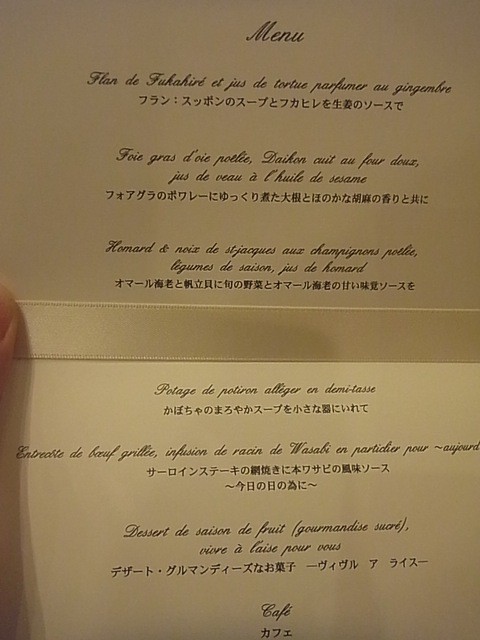 Menu
Flan de Fukahiré et jus de tortue parfumer au gingembre
フラン：スッポンのスープとフカヒレを生姜のソースで
Foie gras d'oie poêlée, Daikon cuit au four doux,
jus de veau à l'huile de sesame
フォアグラのポワレーにゆっくり煮た大根とほのかな胡麻の香りと共に
Homard & noix de st-jacques aux champignons poêlée,
légumes de saison, jus de homard
オマール海老と帆立貝に旬の野菜とオマール海老の甘い味覚ソースを
Potage de potiron alléger en demi-tasse
かぼちゃのまろやかスープを小さな器にいれて
Entrecôte de bœuf grillée, infusion de racin de Wasabi en particlier pour ～aujourd
サーロインステーキの網焼きに本ワサビの風味ソース
～今日の日の為に～
Dessert de saison de fruit (gourmandise sucré),
vivre à l'aise pour vous
デザート・グルマンディーズなお菓子　―ヴィヴル　ア　ライス―
Café
カフェ